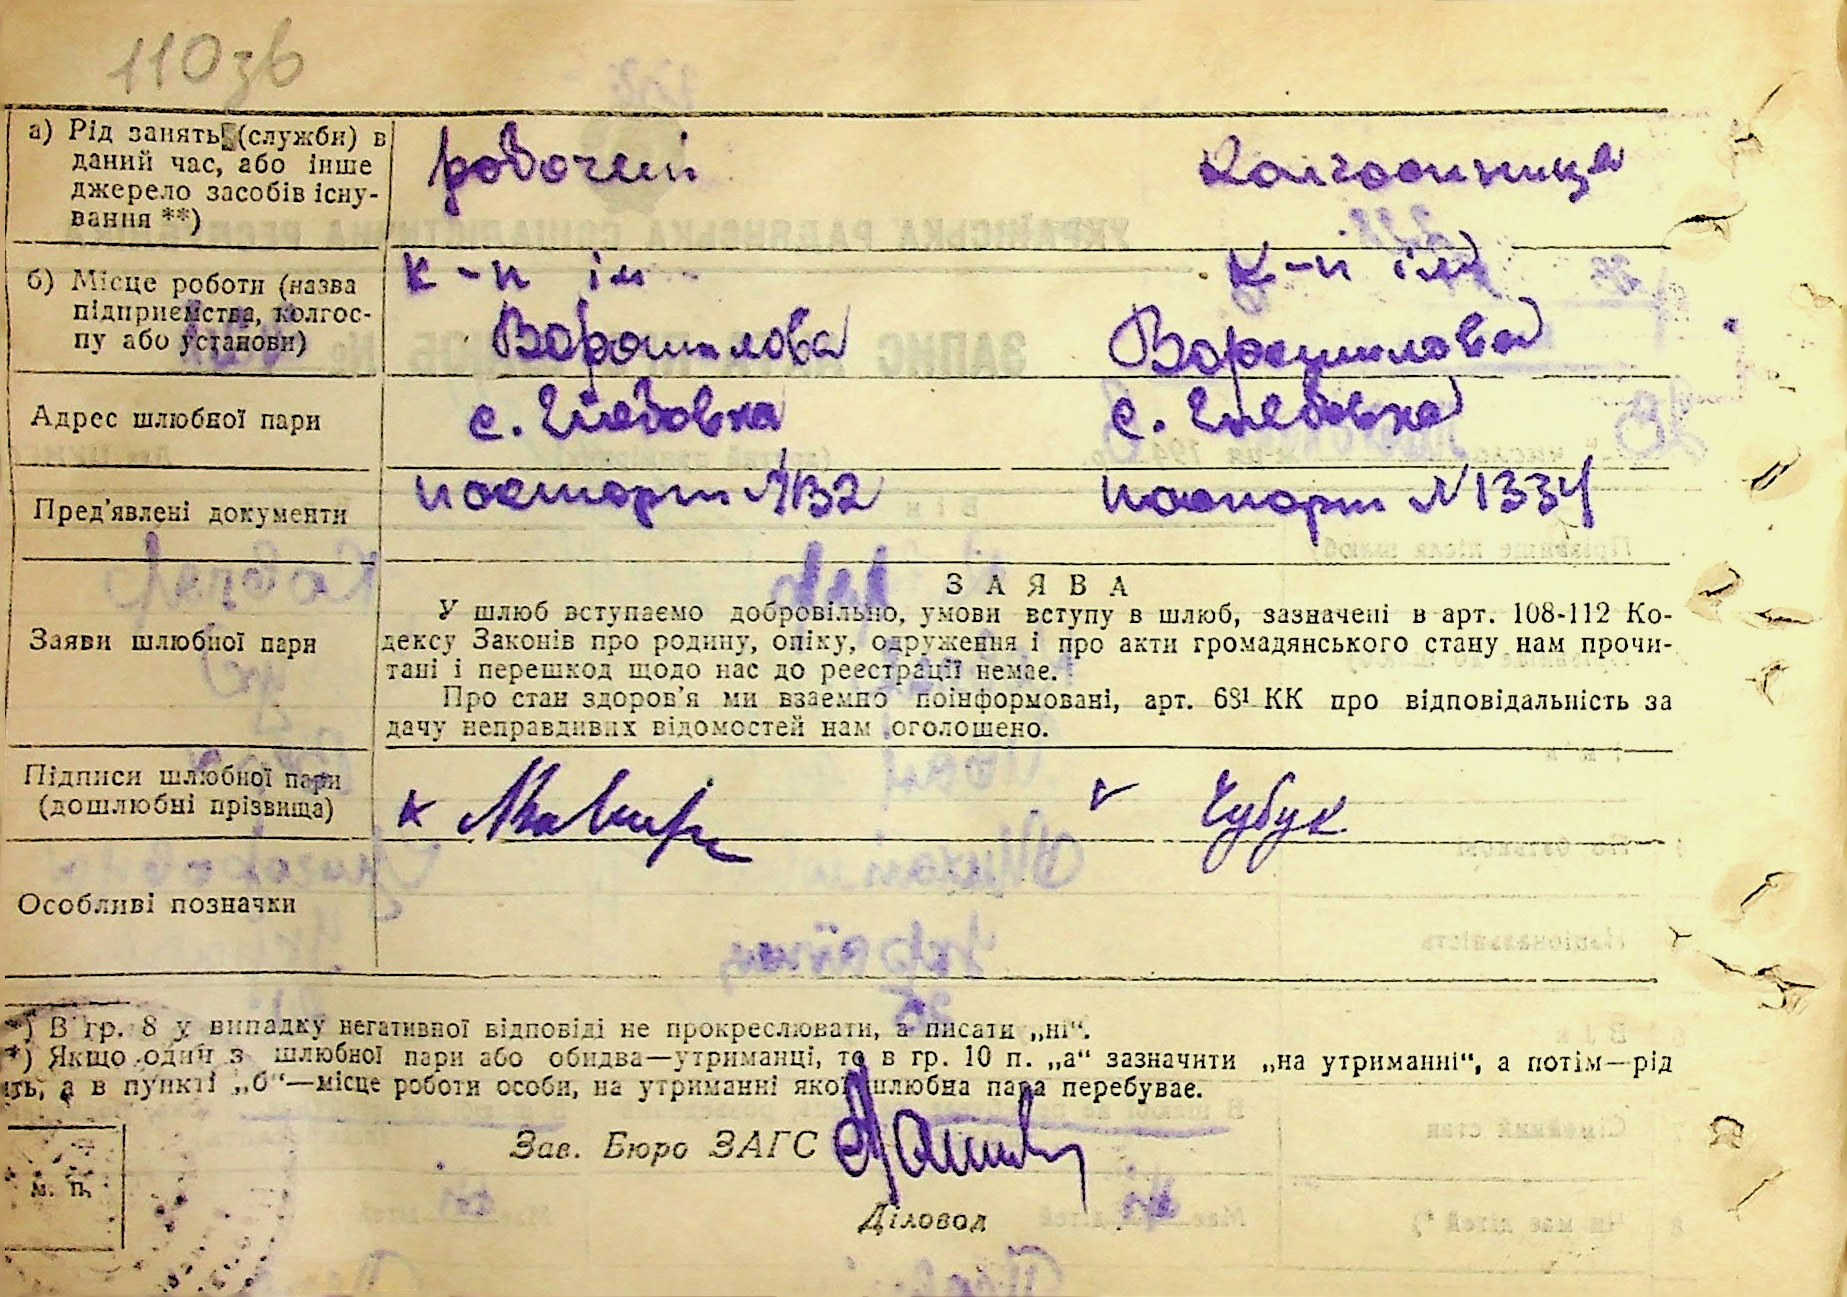 110зв
а) Рід занять (служби) в
даний час, або інше
джерело засобів існу-
вання **)
робочий
колгоспниця
б) Місце роботи (назва
підприємства, колгос-
пу або установи)
к-п ім
Ворошилова
к-п ім
Ворошилова
Адрес шлюбної пари
с. Глебовка
с. Глебовка
Пред'явлені документи
паспорт
паспорт N 1334
Заяви шлюбної пари
ЗАЯВА
У шлюб вступаємо добровільно, умови вступу в шлюб, зазначені в арт. 108-112 Ко-
дексу Законів про родину, опіку, одруження і про акти громадянського стану нам прочи-
тані і перешкод щодо нас до реєстрації немає.
Про стан здоров'я ми взаємно поінформовані, арт. 68¹ КК про відповідальність за
дачу неправдивих відомостей нам оголошено.
Підписи шлюбної пари
(дошлюбні прізвища)
Чубук
Особливі позначки
*) В гр. 8 у випадку негативної відповіді не прокреслювати, а писати „ні“.
*) Якщо один з шлюбної пари або обидва—утриманці, то в гр. 10 п. „а“ зазначити „на утриманні“, а потім—рід
ть, а в пункті „б“—місце роботи особи, на утриманні якої шлюбна пара перебуває.
Зав. Бюро ЗАГС
Діловод
м. п.